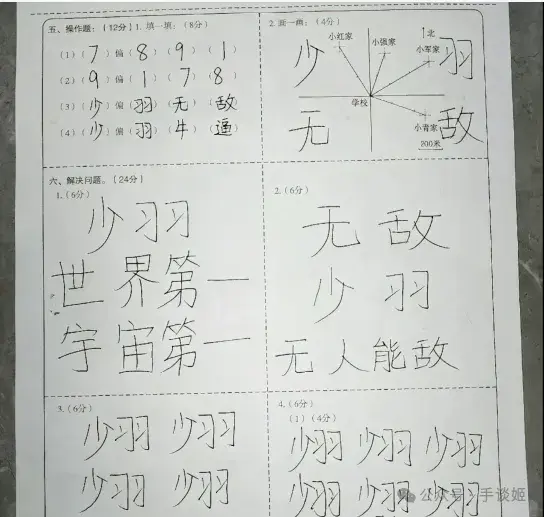 五、操作题:【12分】1. 填一填:(8分)
(1)(7)偏(8)(9)(1)
(2)(9)偏(1)(7)(8)
(3)(少)偏(羽)(无)(敌)
(4)(少)偏(羽)(牛)(逼)
2. 画一画:(4分)
北
小红家
小强家
小军家
学校
小青家
200米
少 羽
无 敌
六、解决问题。【24分】
1.(6分)
少羽
世界第一
宇宙第一
2.(6分)
无敌
少羽
无人能敌
3.(6分)
少羽 少羽
少羽 少羽
4.(6分)
(1)(4分)
少羽 少羽 少羽
少羽 少羽 少羽
公众号·手谈姬